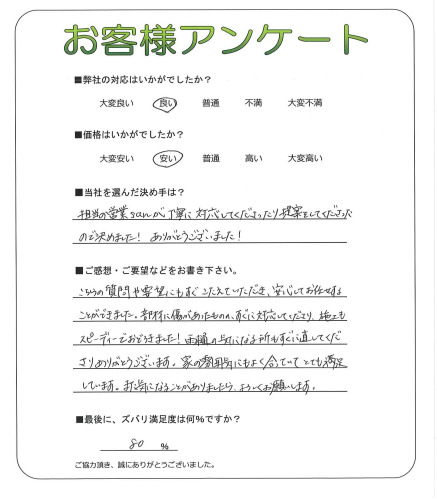 お客様アンケート
■弊社の対応はいかがでしたか？
大変良い 良い 普通 不満 大変不満
■価格はいかがでしたか？
大変安い 安い 普通 高い 大変高い
■当社を選んだ決め手は？
担当の営業さんが丁寧に対応してくださったり提案をしてくださった
ので決めました！ ありがとうございました！
■ご感想・ご要望などをお書き下さい。
こちらの質問や要望にもすぐこたえていただき、安心してお任せする
ことができました。部材に傷があったものの、すぐに対応してくださり、施工も
スピーディーでおどろきました！雨樋の気になる所もすぐに直してくだ
さりありがとうございます。家の雰囲気にもよく合っていてとても満足
しています。また気になることがありましたら、よろしくお願いします。
■最後に、ズバリ満足度は何%ですか？
80 %
ご協力頂き、誠にありがとうございました。